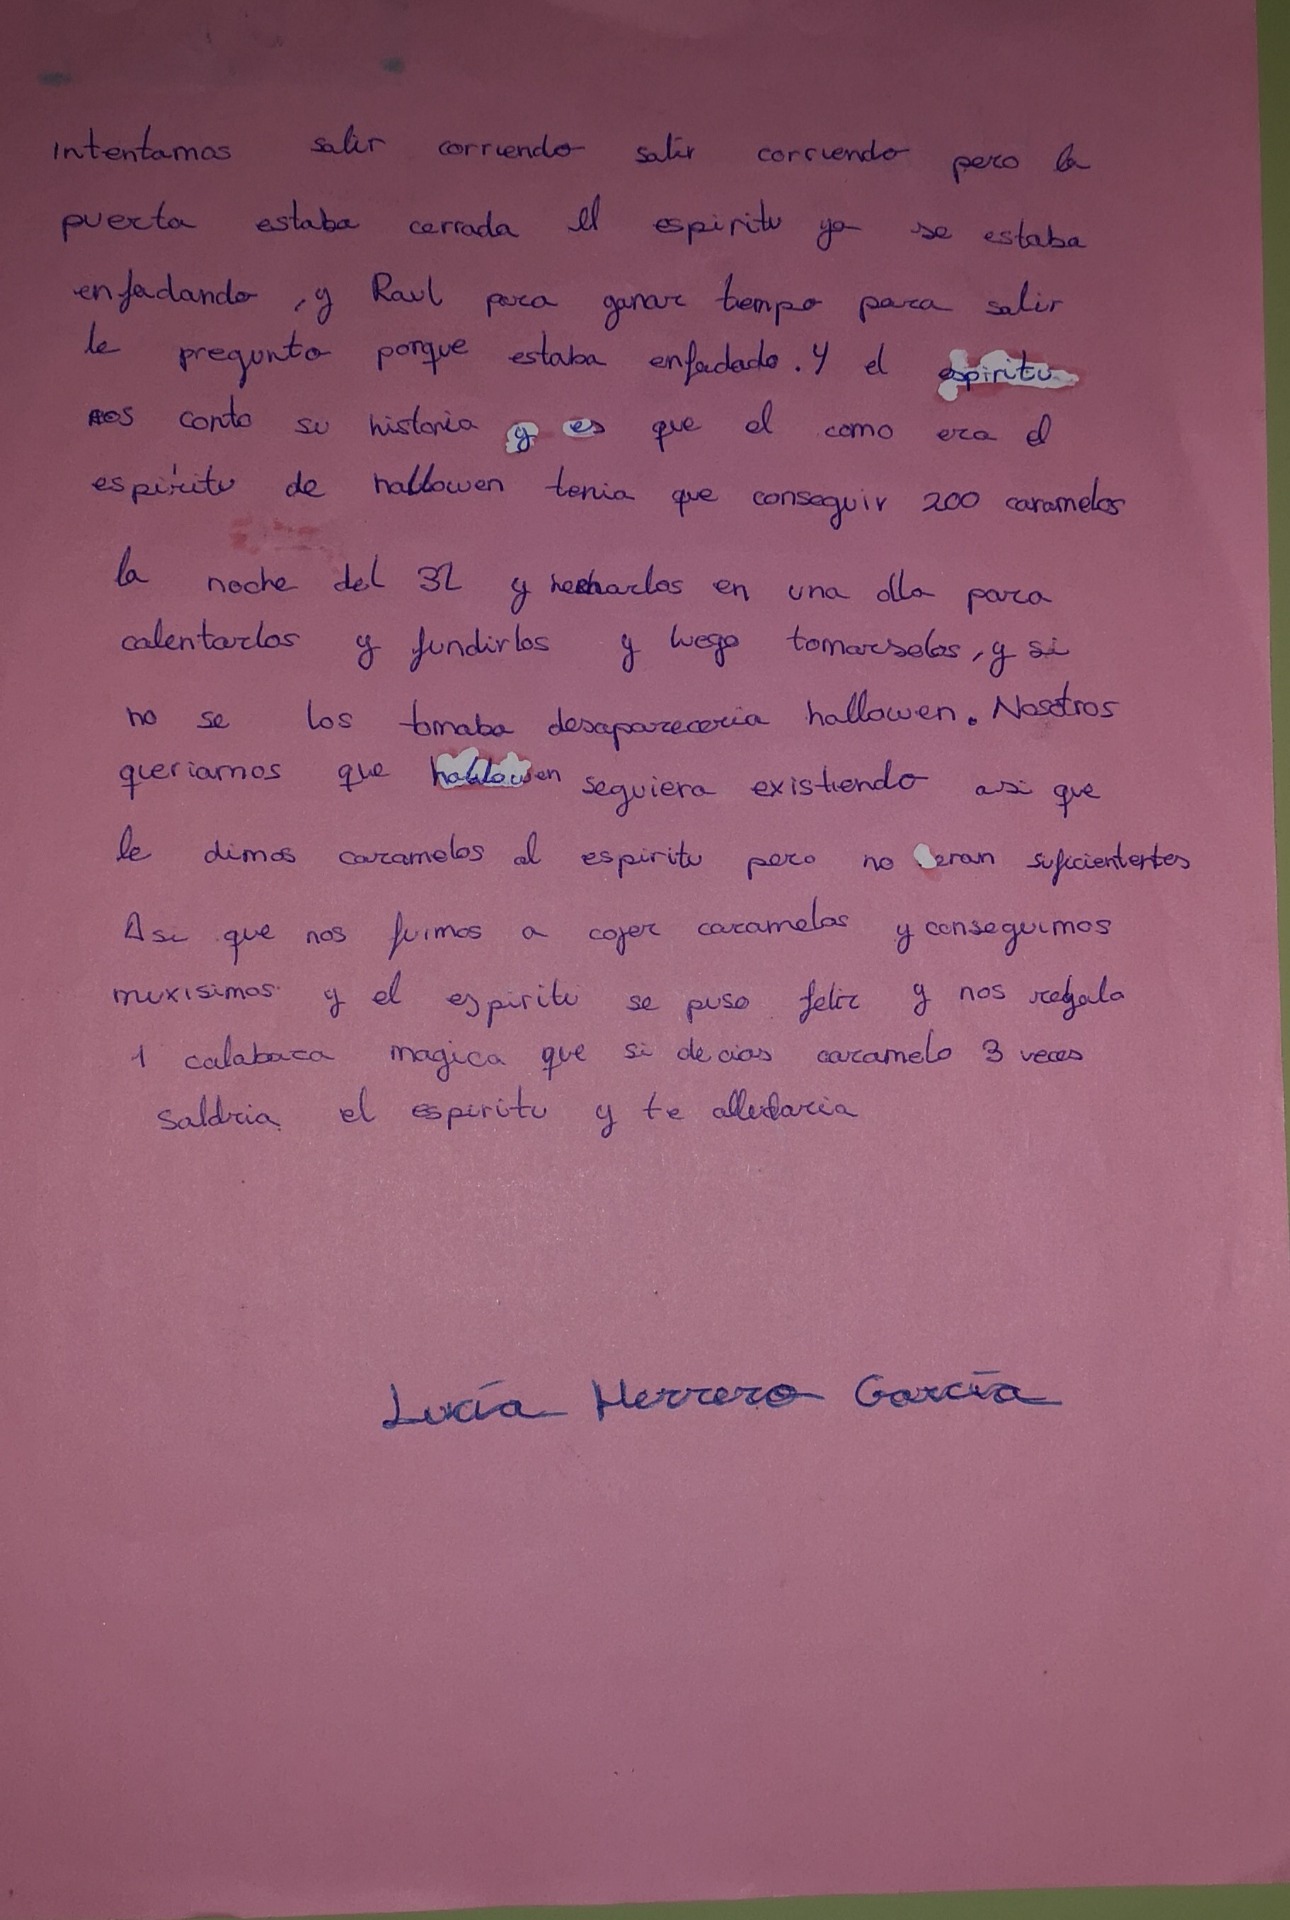 Intentamos salir corriendo salir corriendo pero la
puerta estaba cerrada el espiritu ya se estaba
enfadando, y Raul para ganar tiempo para salir
le pregunto porque estaba enfadado. Y el espiritu
nos conto su historia y es que el como era el
espiritu de hallowen tenia que conseguir 200 caramelos
la noche del 31 y hecharlos en una olla para
calentarlos y fundirlos y luego tomarselos, y si
no se los tomaba desapareceria hallowen. Nosotros
queriamos que hallowen seguiera existiendo asi que
le dimos caramelos al espiritu pero no eran suficientertes
Asi que nos fuimos a cojer caramelos y conseguimos
muxisimos y el espiritu se puso feliz y nos regala
1 calabaza magica que si decias caramelo 3 veces
saldria el espiritu y te alludaria
Lucía Herrero García